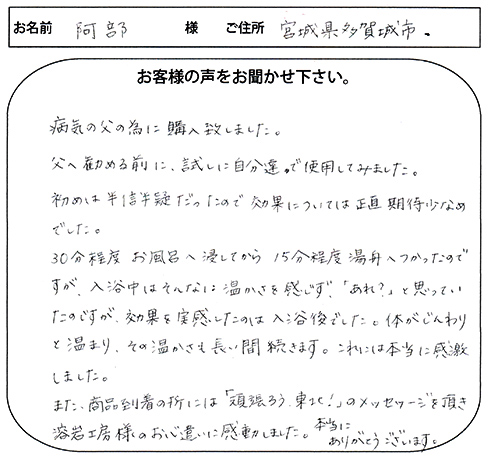 お名前 阿部 様 ご住所 宮城県多賀城市.
お客様の声をお聞かせ下さい。
病気の父の為に購入致しました。
父へ勧める前に、試しに自分達で使用してみました。
初めは半信半疑だったので効果については正直期待少なめ
でした。
30分程度お風呂へ浸してから15分程度湯舟へつかったので
すが、入浴中はそんなに温かさを感じず、「あれ?」と思ってい
たのですが、効果を実感したのは入浴後でした。体がじんわり
と温まり、その温かさも長い間続きます。これには本当に感激
しました。
また、商品到着の折には「頑張ろう東北!」のメッセージを頂き
溶岩工房様のお心遣いに感動しました。本当に
ありがとうございます。